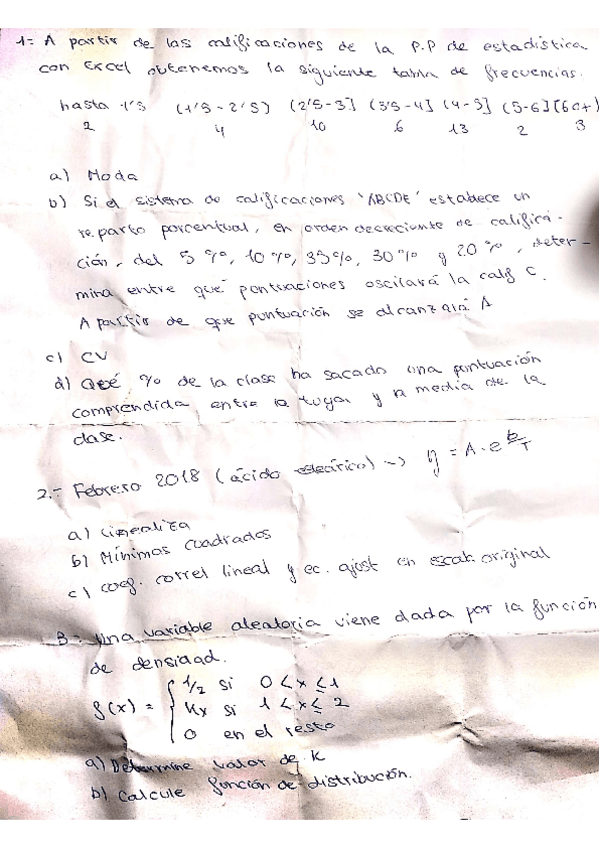 1= A partir de las calificaciones de la P.P de estadística
con Excel obtenemos la siguiente tabla de frecuencias.
hasta 1'5 (1'5-2'5) (2'5-3] (3'5-4] (4-5] (5-6] [6o+)
2 4 10 6 13 2 3
a) Moda
b) Si el sistema de calificaciones 'ABCDE' establece un
reparto porcentual, en orden decreciente de califica-
ción, del 5%, 10%, 35%, 30% y 20%, deter-
mina entre qué puntuaciones oscilará la calif C.
A partir de que puntuación se alcanzará A
c) CV
d) Qué % de la clase ha sacado una puntuación
comprendida entre la tuya y la media de la
clase.
2.- Febrero 2018 (ácido) -> y = A·e^B/T
a) Linealiza
b) Mínimos cuadrados
c) coef. correl lineal y ec. ajust en escal. original
3= Una variable aleatoria viene dada por la función
de densidad.
f(x) = { 1/2 si 0<x≤1
Kx si 1<x≤2
0 en el resto
a) Determine valor de k
b) Calcule función de distribución.